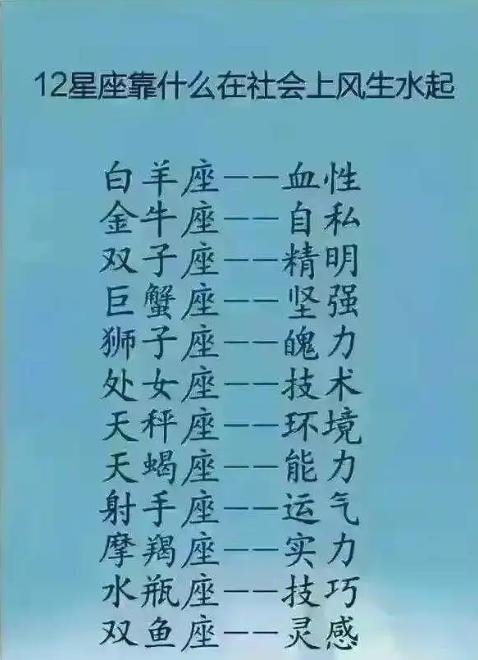 12星座靠什么在社会上风生水起
白羊座——血性
金牛座——自私
双子座——精明
巨蟹座——坚强
狮子座——魄力
处女座——技术
天秤座——环境
天蝎座——能力
射手座——运气
摩羯座——实力
水瓶座——技巧
双鱼座——灵感